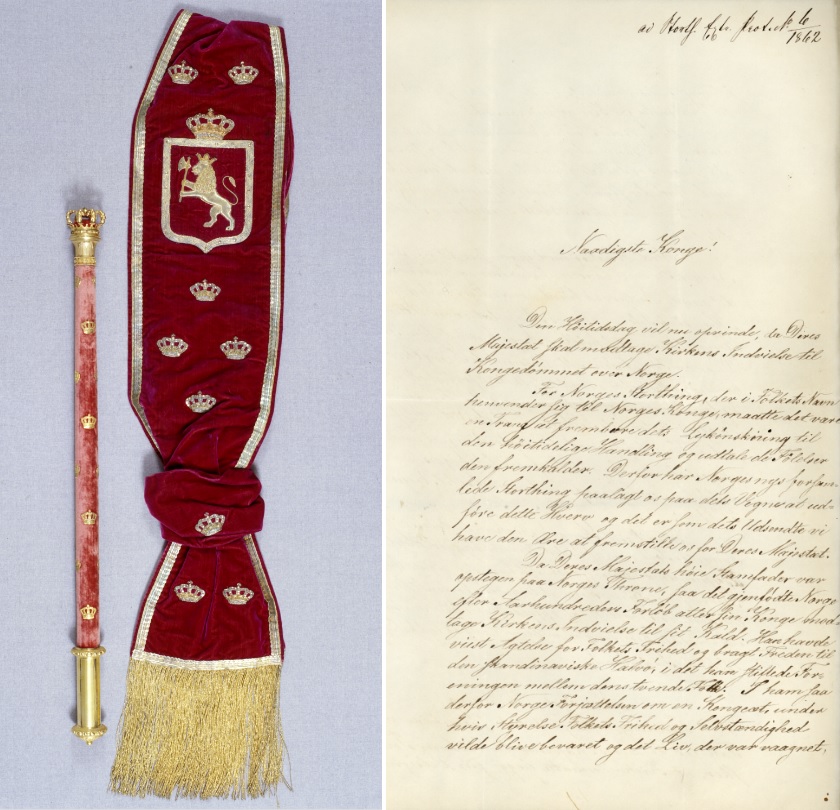 ad Storth. Prot. No 6
1862
Naadigste Konge!
Den Höitidsdag vil nu oprinde, da Deres
Majestæt skal modtage Kirkens Indvielse til
Kongedømmet over Norge.
For Norges Storthing, der i Folkets Navn
henvender sig til Norges Konge, maatte det være
en Trang at frembære dets Lykønskning til
den höitidelige Handling og udtale de Følelser
den fremkalder. Derfor har Norges nys forsam-
lede Storthing paalagt os paa dets Vegne at ud-
føre dette Hverv og det er som dets Udsendte vi
have den Ære at fremstille os for Deres Majestæt.
Da Deres Majestæts höie Stamfader var
opstegen paa Norges Throne, saa det gjenfødte Norge
efter Aarhundreders Forløb atter sin Konge mod-
tage Kirkens Indvielse til sit Kald. Han havde
viist Agtelse for Folkets Frihed og bragt Freden til
den skandinaviske Halvö, idet han stiftede For-
eningen mellem dens tvende Folk. I ham saa
derfor Norge Forjættelsen om en Kongeæt, under
hvis Styrelse Folkets Frihed og Selvstændighed
vilde blive bevaret og det Liv, der var vaagnet,